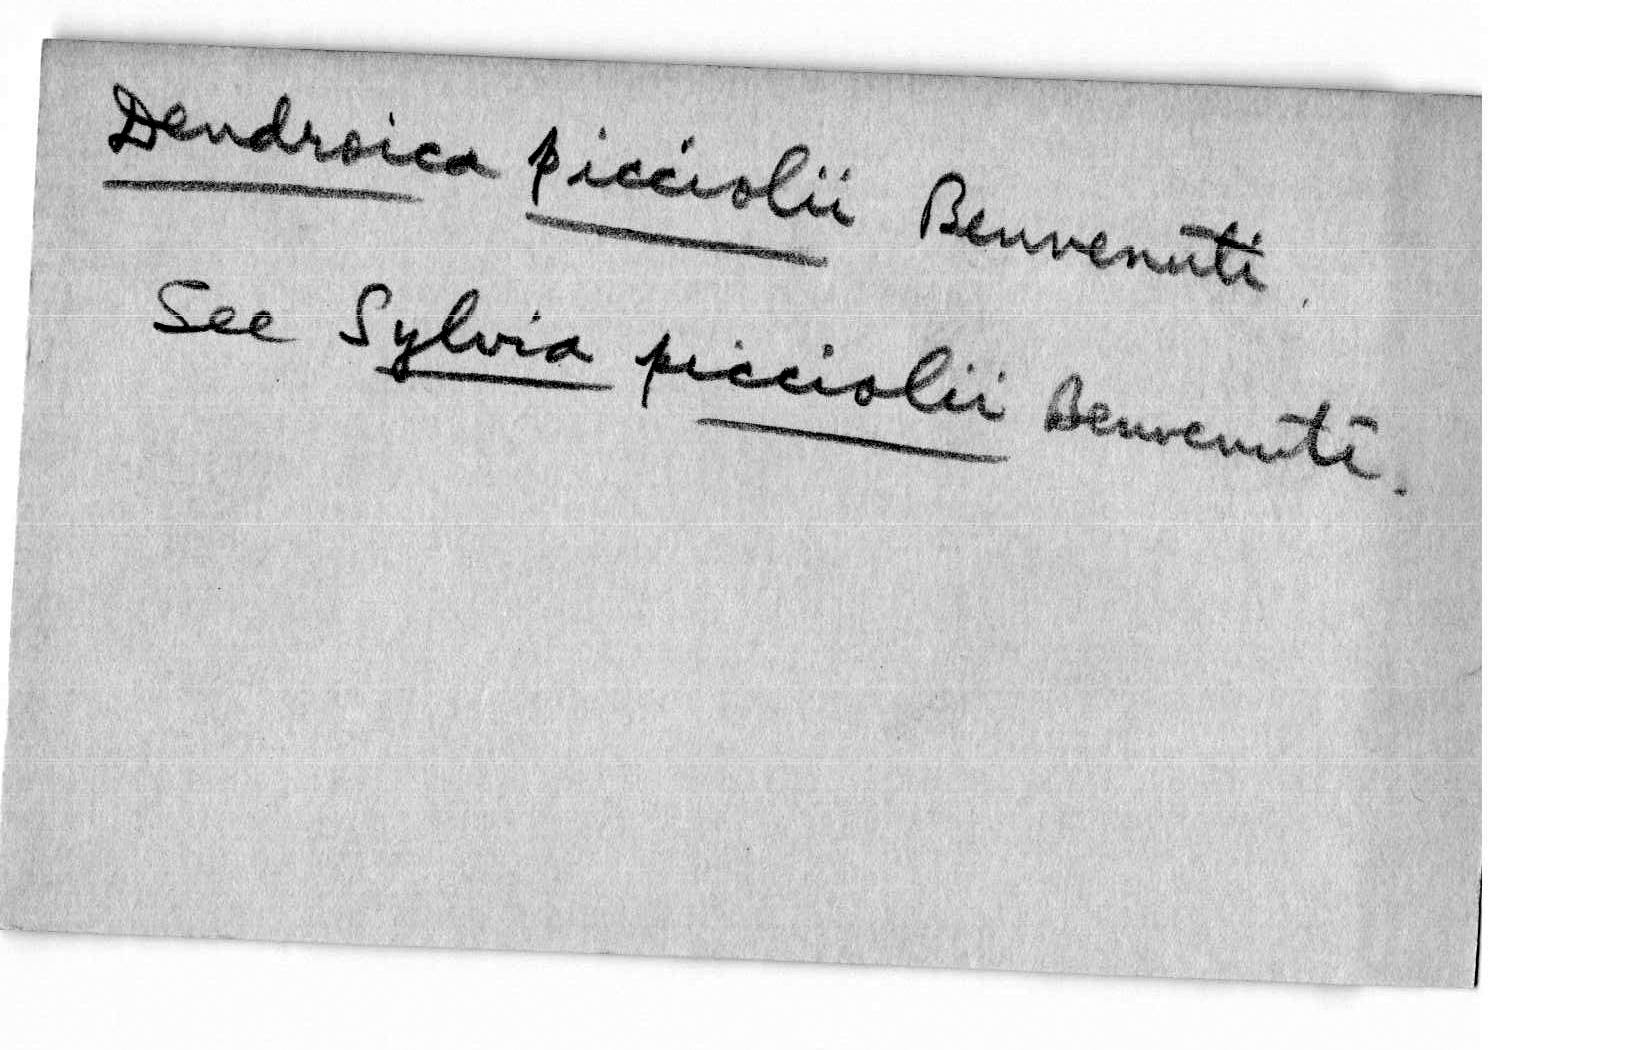 Dendroica picciolii Benvenuti.
See Sylvia picciolii Benvenuti.